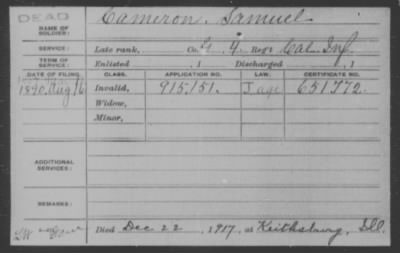 DEAD
NAME OF SOLDIER: Cameron, Samuel
SERVICE: Late rank, Co. G, 4 Reg't Cal. Inf.
TERM OF SERVICE: Enlisted , 1 Discharged , 1
DATE OF FILING. CLASS. APPLICATION NO. LAW. CERTIFICATE NO.
1890, Aug 16 Invalid, 915,151. J age 651772.
Widow,
Minor,
ADDITIONAL SERVICES:
REMARKS:
Died Dec 22 1917, at Keithsburg, Ill.